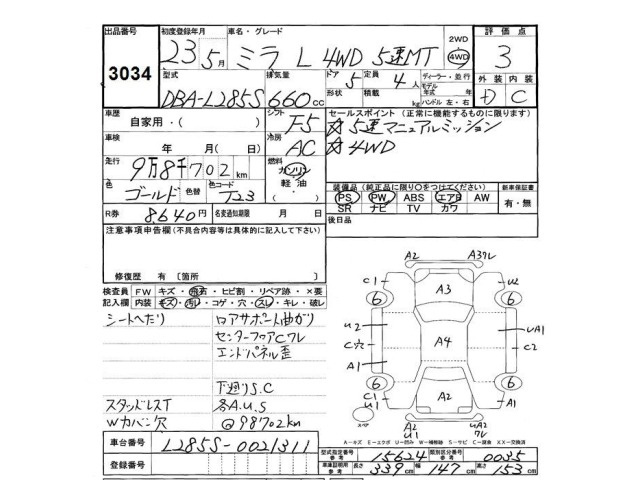 出品番号 初度登録年月 車名・グレード 2WD 評価点
3034 23年5月 ミラ L 4WD 5速MT 4WD 3
型式 排気量 ドア 定員 ディーラー・並行 外装 内装
DBA-L285S 660cc 5 4人 モデル年式 年 D C
形状 積載 kg ハンドル 左・右
車歴 自家用・( ) シフト F5 セールスポイント (正常に機能するものに限ります)
☆5速マニュアルミッション
車検 年 月( 日) 冷房 AC ☆4WD
走行 9万8千702km 燃料 ガソリン
軽油・( )
色 ゴールド 色替 色コード T23
装備品(純正品に限り○をつけてください) 新車保証書
PS PW ABS エアB AW 有・無
SR ナビ TV カワ
R券 8640円 名変通知期限 月 日 後日品
注意事項申告欄(不具合内容等は具体的に記入して下さい)
修復歴 有 〔箇所 〕
検査員 FW キズ・飛石・ヒビ割・リペア跡・×要
記入欄 内装 キズ・汚れ・コゲ・穴・スレ・キレ・破レ
シートへたり ロアサポート曲がり
センターフロアCワレ
エンドパネル歪
下廻りS.C
スタッドレスT 各A.U.S
Wカバン穴 @98702km
A2 A3ワレ
C1 A3 U2
6 6
U2 UA1
C穴 A4 C2
A1
6 6
C1 U1 A2 A1
スペア A2 U1 U2 ワレ
A-キズ E-エクボ U-凹み W-補修跡 S-サビ C-腐食 XX-交換済
車台番号 L285S-0021311
型式指定番号 参考 15624 類別区分番号 参考 0035
登録番号 車庫証明用 参考 長さ 339cm 幅 147cm 高さ 153cm